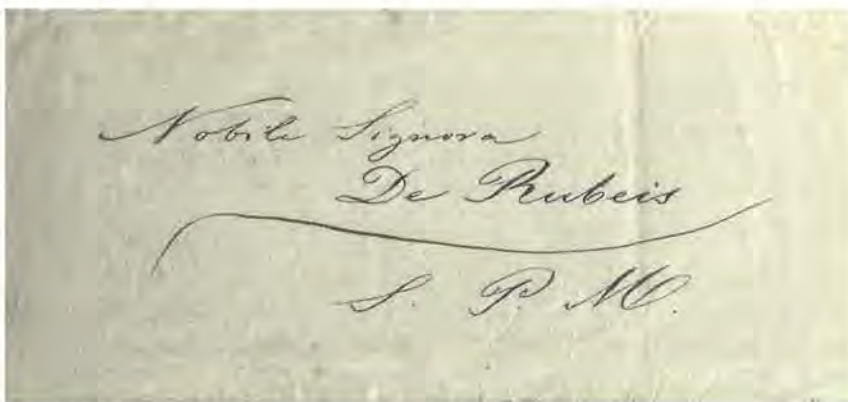 Nobile Signora
De Rubeis
S. P. M.